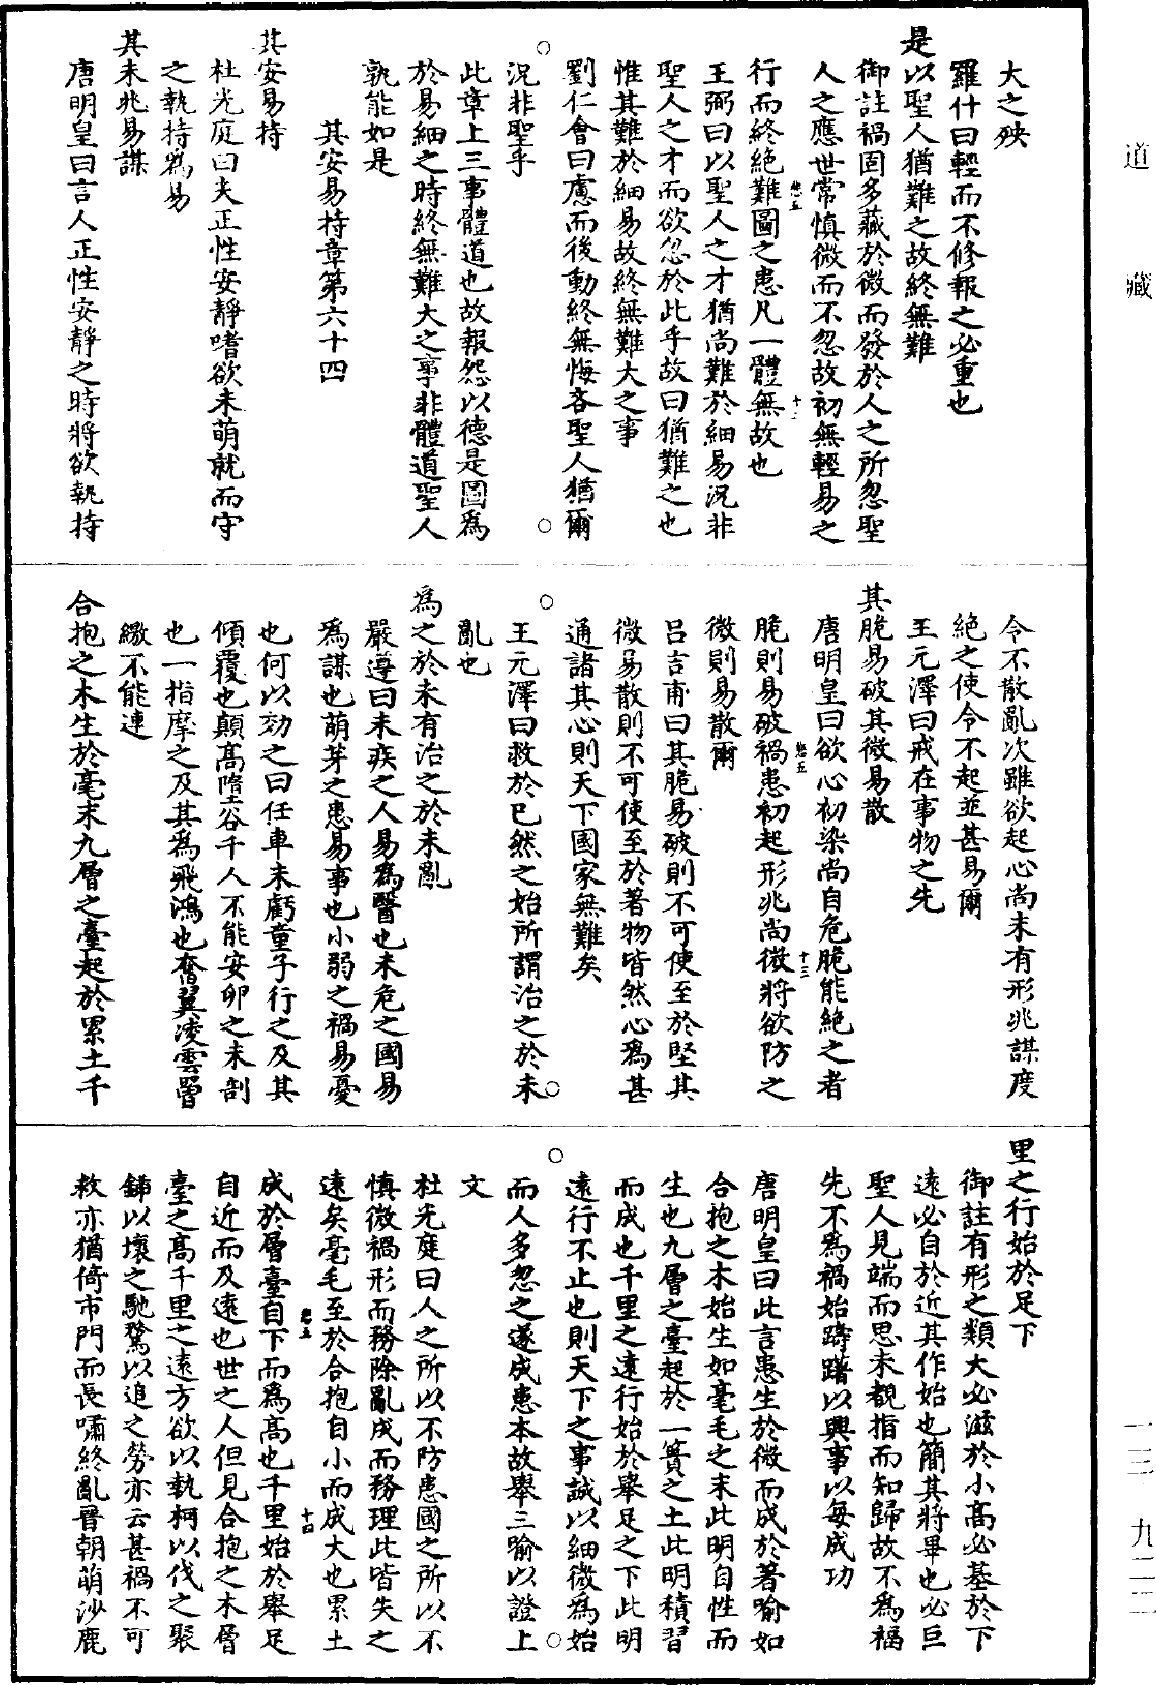 道藏
大之殃
羅什曰輕而不修報之必重也
是以聖人猶難之故終無難
御註禍固多藏於微而發於人之所忽聖
人之應世常慎微而不忽故初無輕易之
行而終絶難圖之患凡一體無故也
王弼曰以聖人之才猶尚難於細易況非
聖人之才而欲忽於此乎故曰猶難之也
惟其難於細易故終無難大之事
劉仁會曰慮而後動終無悔吝聖人猶爾
況非聖乎
此章上三事體道也故報怨以德是圖爲
於易細之時終無難大之事非體道聖人
孰能如是
其安易持章第六十四
其安易持
杜光庭曰夫正性安靜嗜欲未萌就而守
之執持爲易
其未兆易謀
唐明皇曰言人正性安靜之時將欲執持
令不散亂次雖欲起心尚未有形兆謀度
絶之使令不起並甚易爾
王元澤曰戒在事物之先
其脆易破其微易散
唐明皇曰欲心初染尚自危脆能絶之者
脆則易破禍患初起形兆尚微將欲防之
微則易散爾
吕吉甫曰其脆易破則不可使至於堅其
微易散則不可使至於著物皆然心爲甚
通諸其心則天下國家無難矣
王元澤曰救於已然之始所謂治之於未
亂也
爲之於未有治之於未亂
嚴遵曰未疾之人易爲醫也未危之國易
爲謀也萌芽之患易事也小弱之禍易憂
也何以効之曰任車未虧童子行之及其
傾覆也顛高墮谷千人不能安卵之未剖
也一指摩之及其爲飛鴻也奮翼凌雲罾
繳不能連
合抱之木生於毫末九層之臺起於累土千
里之行始於足下
御註有形之類大必滋於小高必基於下
遠必自於近其作始也簡其將畢也必巨
聖人見端而思末覩指而知歸故不爲福
先不爲禍始躊躇以興事以每成功
唐明皇曰此言患生於微而成於著喻如
合抱之木始生如毫毛之末此明自性而
生也九層之臺起於一簣之土此明積習
而成也千里之遠行始於舉足之下此明
遠行不止也則天下之事誠以細微爲始
而人多忽之遂成患本故舉三喻以證上
文
杜光庭曰人之所以不防患國之所以不
慎微禍形而務除亂成而務理此皆失之
遠矣毫毛至於合抱自小而成大也累土
成於層臺自下而爲高也千里始於舉足
自近而及遠也世之人但見合抱之木層
臺之高千里之遠方欲以執柯以伐之聚
鍤以壞之馳騖以追之勞亦云甚禍不可
救亦猶倚市門而長嘯終亂晉朝萌沙鹿
一三·九二二